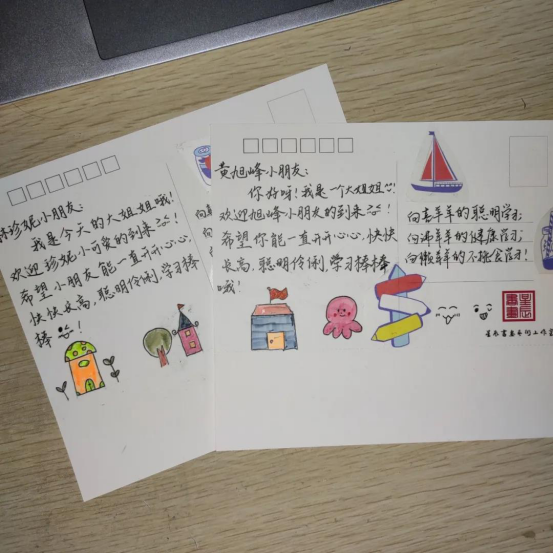 珍妮小朋友：
我是今天的大姐姐哦！
欢迎珍妮小可爱的到来！
希望小朋友能一直开开心心，
快快长高，聪明伶俐，学习棒
棒！
黄旭峰小朋友：
你好呀！我是一个大姐姐！
欢迎旭峰小朋友的到来！
希望你能一直开开心心，快快
长高，聪明伶俐，学习棒棒
哦！
向喜羊羊的聪明学习；
向沸羊羊的健康学习；
向懒羊羊的不挑食学习！